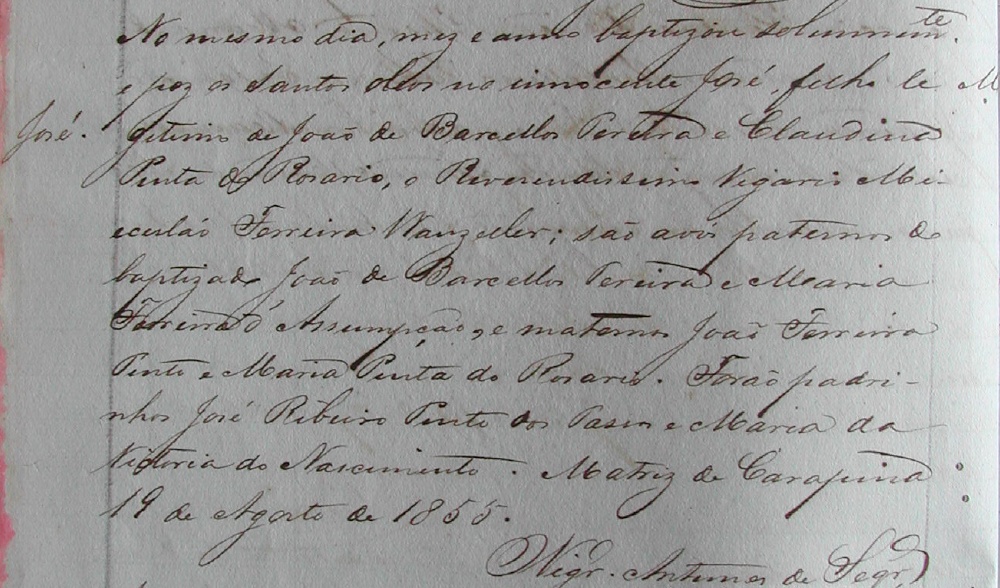 No mesmo dia, mez e anno baptizou solemnem.te
e poz os Santos oleos no innocente José, filho le
José. getimo de João de Barcellos Pereira e Claudina
Pinta do Rosario, o Reverendissimo Vigario Mi-
eculáo Ferreira Wanzeller; são avós paternos do
baptizado João de Barcellos Pereira e Maria
Ferreira d'Assumpção, e maternos João Ferreira
Pinto e Maria Pinta do Rosario. Forão padri-
nhos José Ribeiro Pinto dos Passos e Maria da
Victoria do Nascimento. Matriz de Carapina
19 de Agosto de 1855.
Vigr. Antunes de